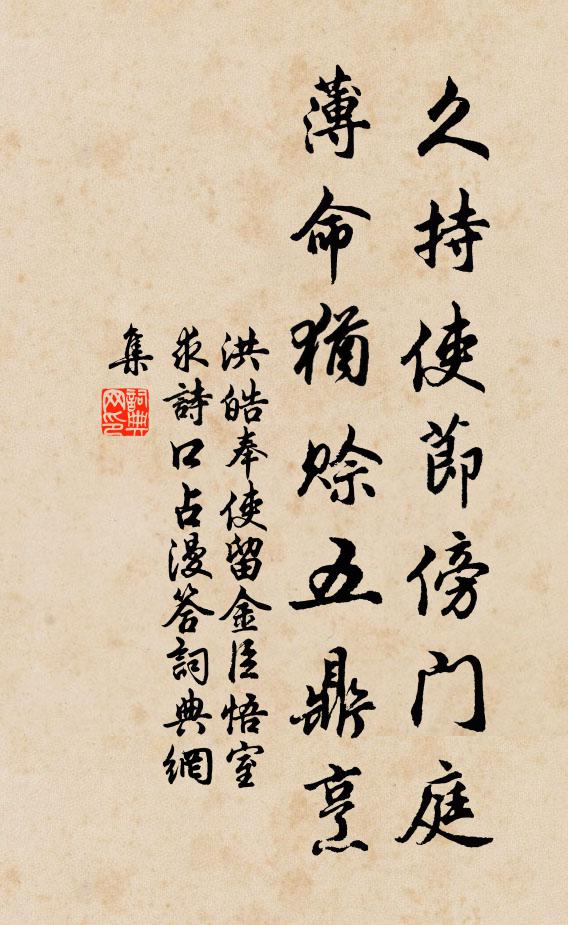 久持使節傍门庭
薄命猶賒五鼎烹
洪皓奉使留金臣悟室
求詩口占漫答詞典網
集
詞典
网印